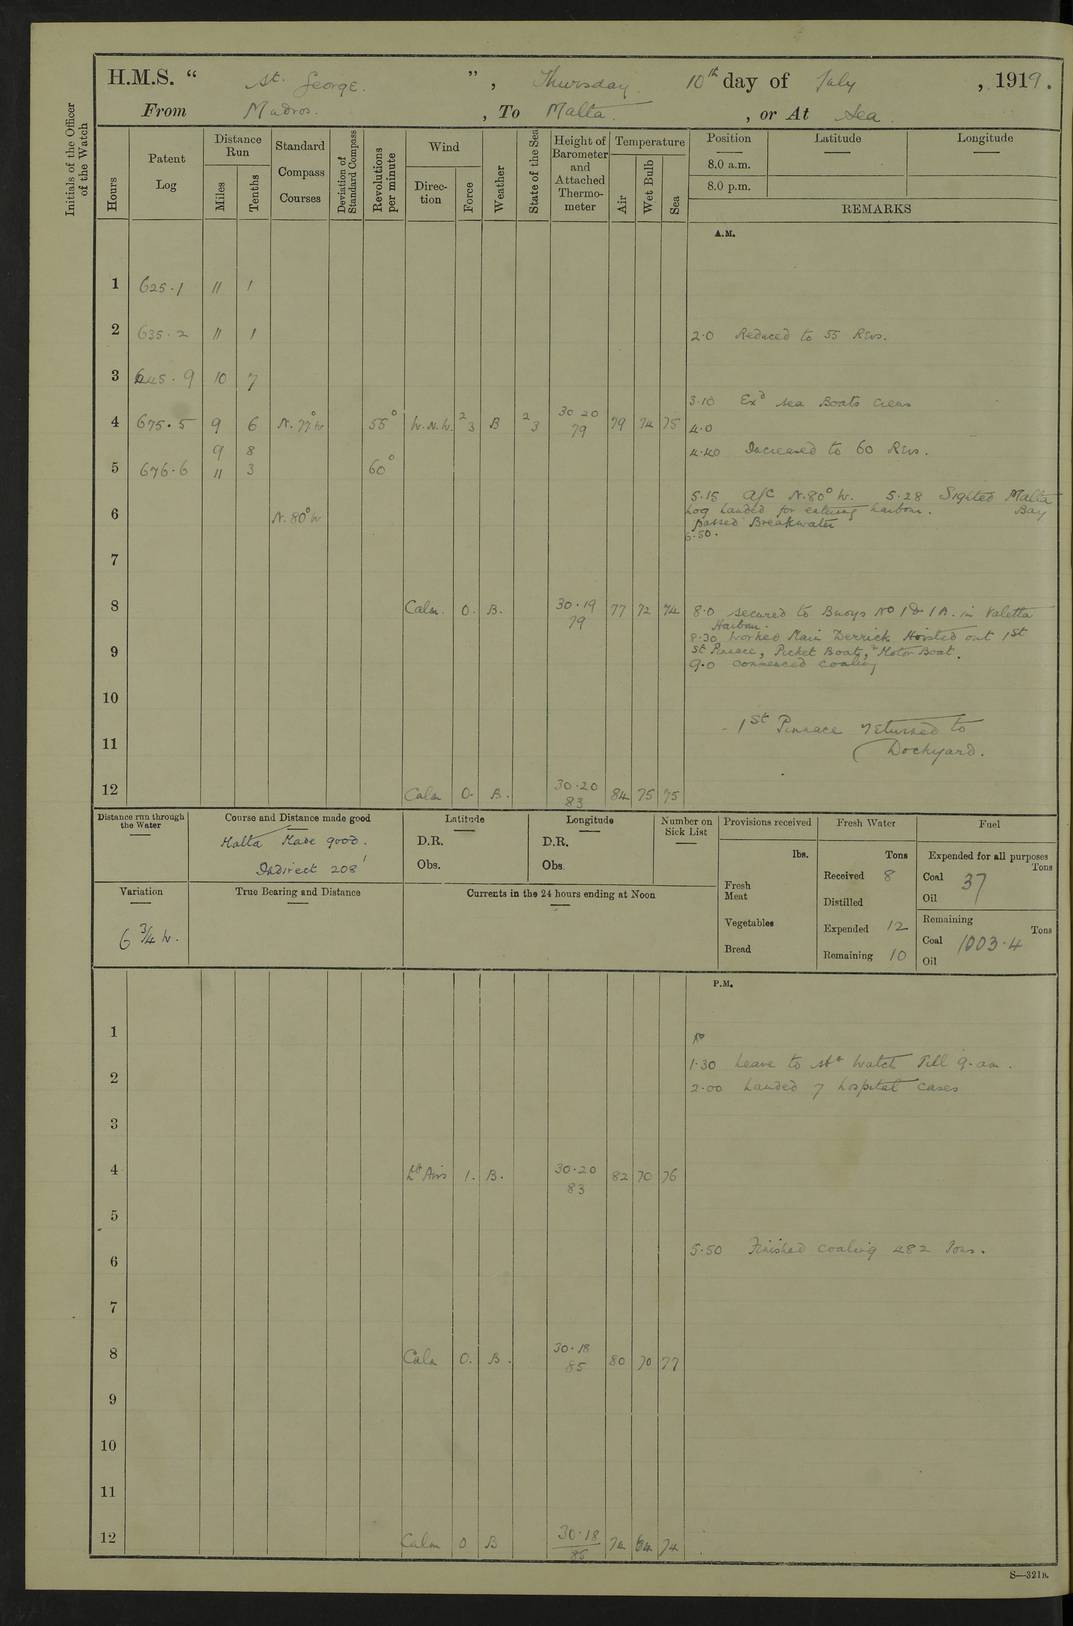 H.M.S. " St. George. ", Thursday 10th day of July, 1919.
From Mudros., To Malta., or At Sea.
Initials of the Officer of the Watch
Hours
Patent Log
Distance Run
Miles
Tenths
Standard Compass Courses
Deviation of Standard Compass
Revolutions per minute
Wind
Direction
Force
Weather
State of the Sea
Height of Barometer and Attached Thermometer
Temperature
Air
Wet Bulb
Sea
Position
Latitude
Longitude
8.0 a.m.
8.0 p.m.
REMARKS
A.M.
1 625.1 11 1
2 635.2 11 1 2.0 Reduced to 55 Revs.
3 645.9 10 7
3.10 Exd Sea Boats Crews
4 675.5 9 6 N.77°W 55° W.N.W. 2 3 B 2 3 30 20 79 79 74 75 4.0
9 8 4.40 Increased to 60 Revs.
5 676.6 11 3 60°
5.15 A/C N.80°W. 5.28 Sighted Malta
6 N.80°W Log handed for entering harbour. Bay
passed Breakwater
6.50.
7
8 Calm. 0. B. 30.19 79 77 72 74 8.0 secured to Buoys No 1 & 1A. in Valetta
Harbour.
8.30 Worked Main Derrick Hoisted out 1st
9 St Pinnace, Picket Boats, & Motor Boat.
9.0 commenced coaling
10
1st Pinnace returned to
11 Dockyard.
12 Calm 0. B. 30.20 83 84 75 75
Distance run through the Water
Course and Distance made good
Malta Made good.
Indirect 208'
Latitude
D.R.
Obs.
Longitude
D.R.
Obs.
Number on Sick List
Provisions received
lbs.
Fresh Meat
Vegetables
Bread
Fresh Water
Tons
Received 8
Distilled
Expended 12
Remaining 10
Fuel
Expended for all purposes
Tons
Coal 37
Oil
Remaining
Tons
Coal 1003.4
Oil
Variation
6 3/4 W.
True Bearing and Distance
Currents in the 24 hours ending at Noon
P.M.
1
1.30 Leave to Std Watch till 9.am.
2 2.00 Landed 7 hospital cases
3
4 Lt Airs 1. B. 30.20 83 82 70 76
5
5.50 Finished coaling 482 Tons.
6
7
8 Calm 0. B. 30.18 85 80 70 77
9
10
11
12 Calm 0 B 30.18 85 74 64 74
S—321B.